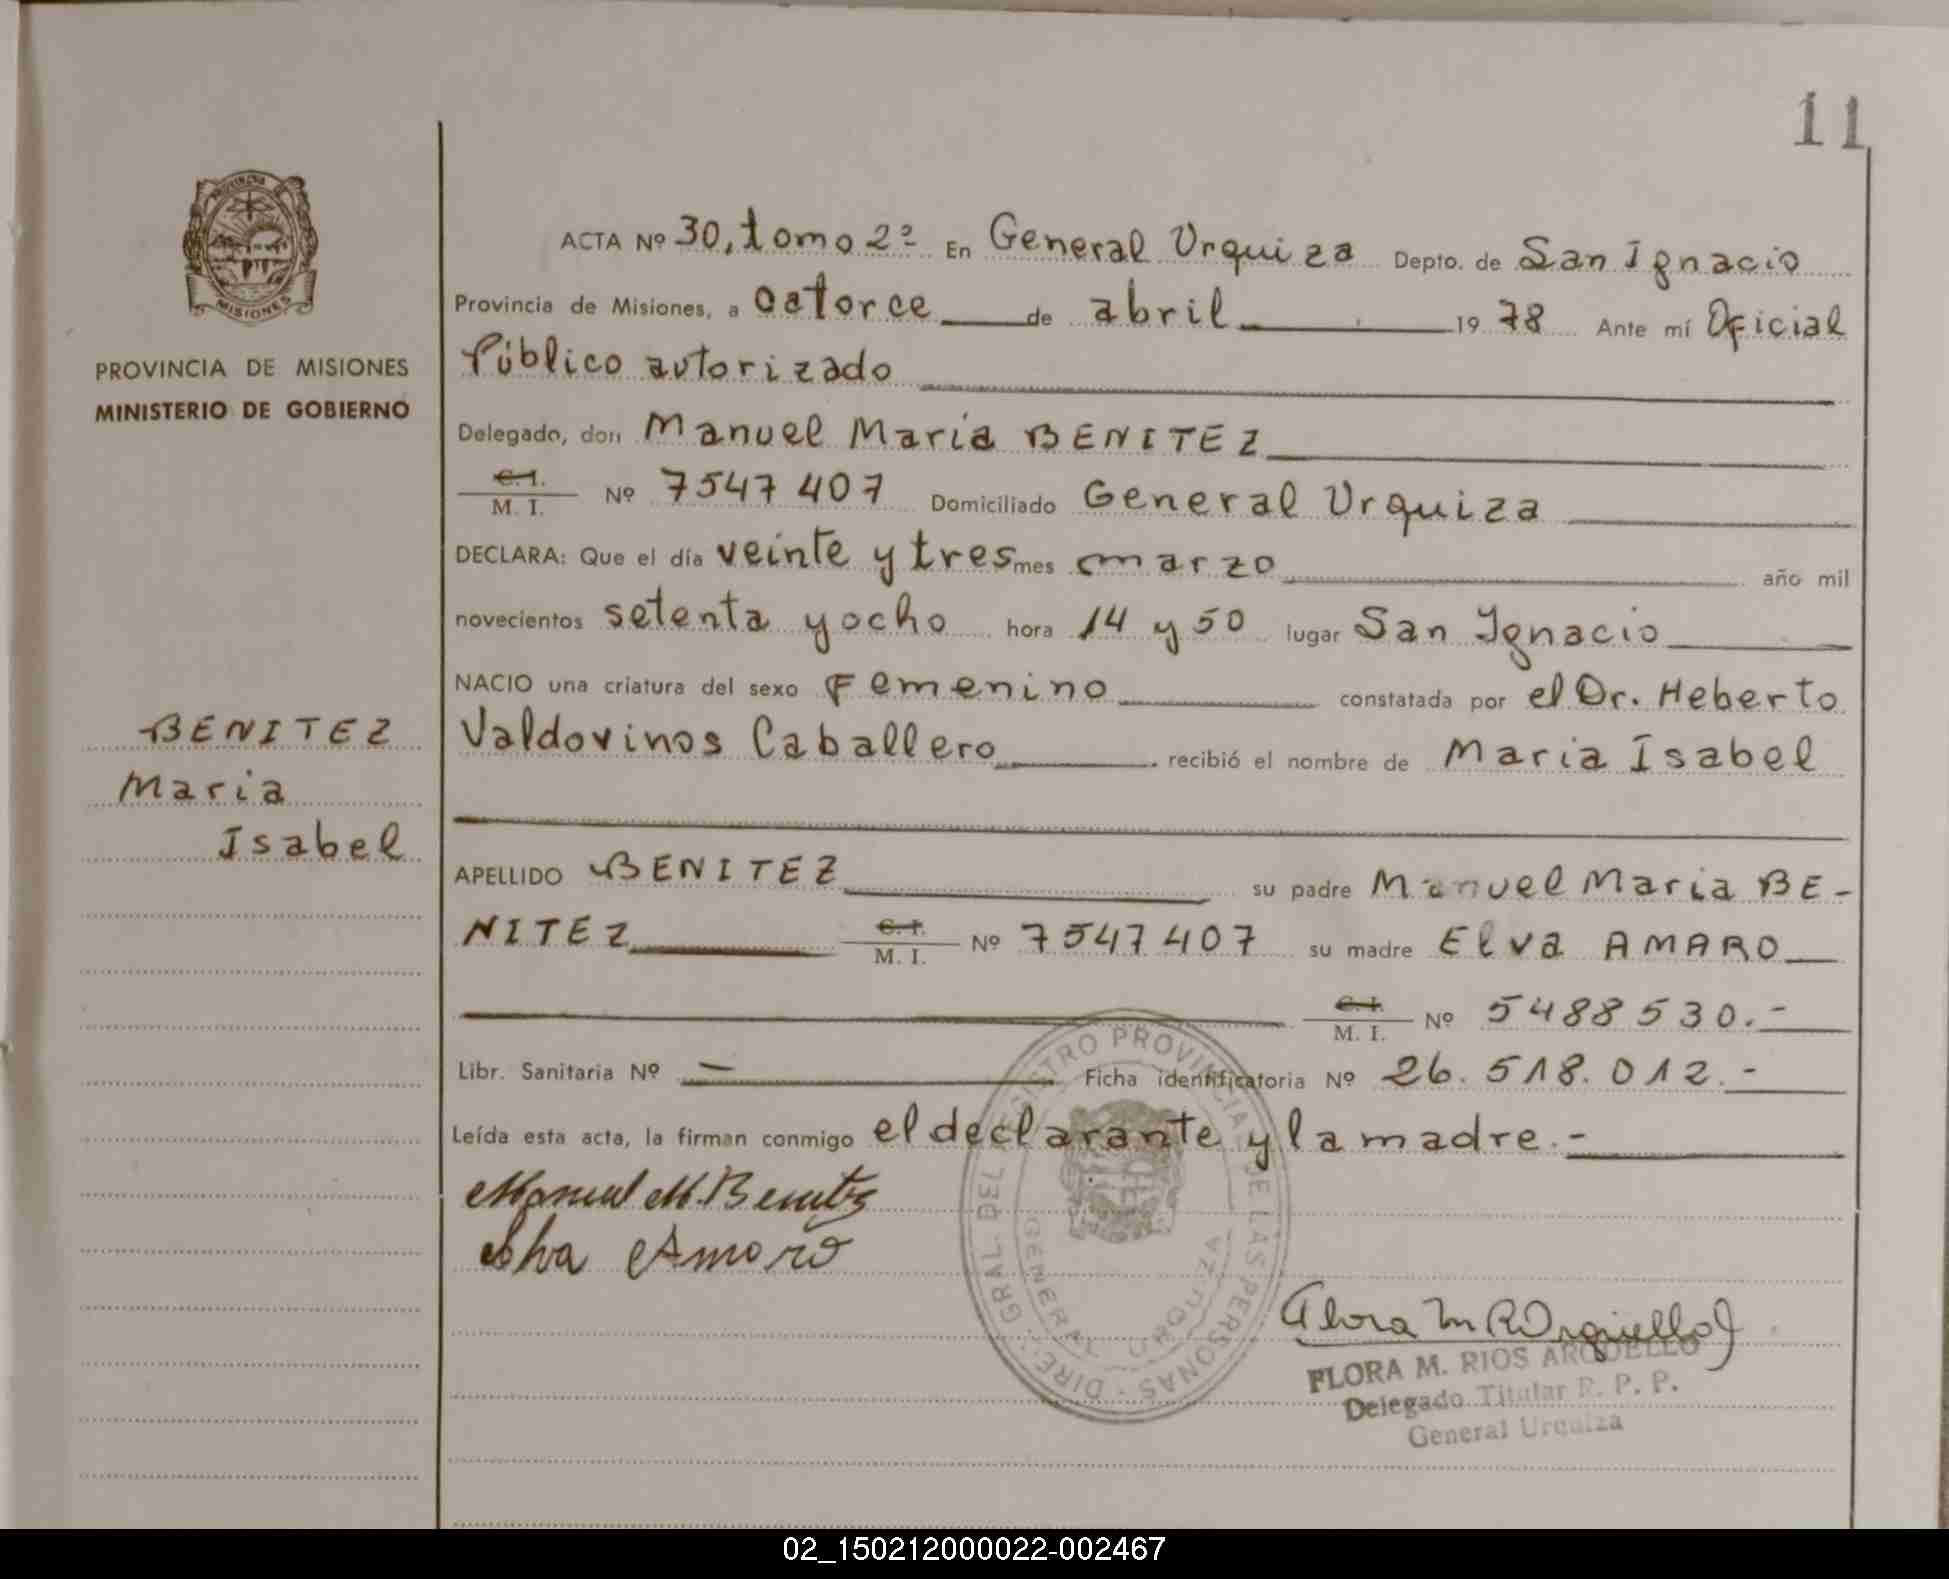 11
PROVINCIA DE
MISIONES
PROVINCIA DE MISIONES
MINISTERIO DE GOBIERNO
BENITEZ
Maria
Isabel
ACTA Nº 30, tomo 2º En General Urquiza Depto. de San Ignacio
Provincia de Misiones, a catorce de abril 1978 Ante mí Oficial
Público autorizado
Delegado, don Manuel Maria BENITEZ
C. I.
M. I. Nº 7547407 Domiciliado General Urquiza
DECLARA: Que el día veinte y tres mes marzo año mil
novecientos setenta y ocho hora 14 y 50 lugar San Ignacio
NACIO una criatura del sexo Femenino constatada por el Dr. Heberto
Valdovinos Caballero recibió el nombre de Maria Isabel
APELLIDO BENITEZ su padre Manuel Maria BE-
NITEZ C. I. M. I. Nº 7547407 su madre Elva AMARO
C. I. M. I. Nº 5488530.-
Libr. Sanitaria Nº — Ficha identificatoria Nº 26.518.012.-
Leída esta acta, la firman conmigo el declarante y la madre.-
Manuel M. Benitez
Elva Amaro
DIRE. GRAL. DEL REGISTRO PROVINCIAL DE LAS PERSONAS
GENERAL URQUIZA
FLORA M. RIOS ARGUELLO
Delegado Titular R. P. P.
General Urquiza
02_150212000022-002467